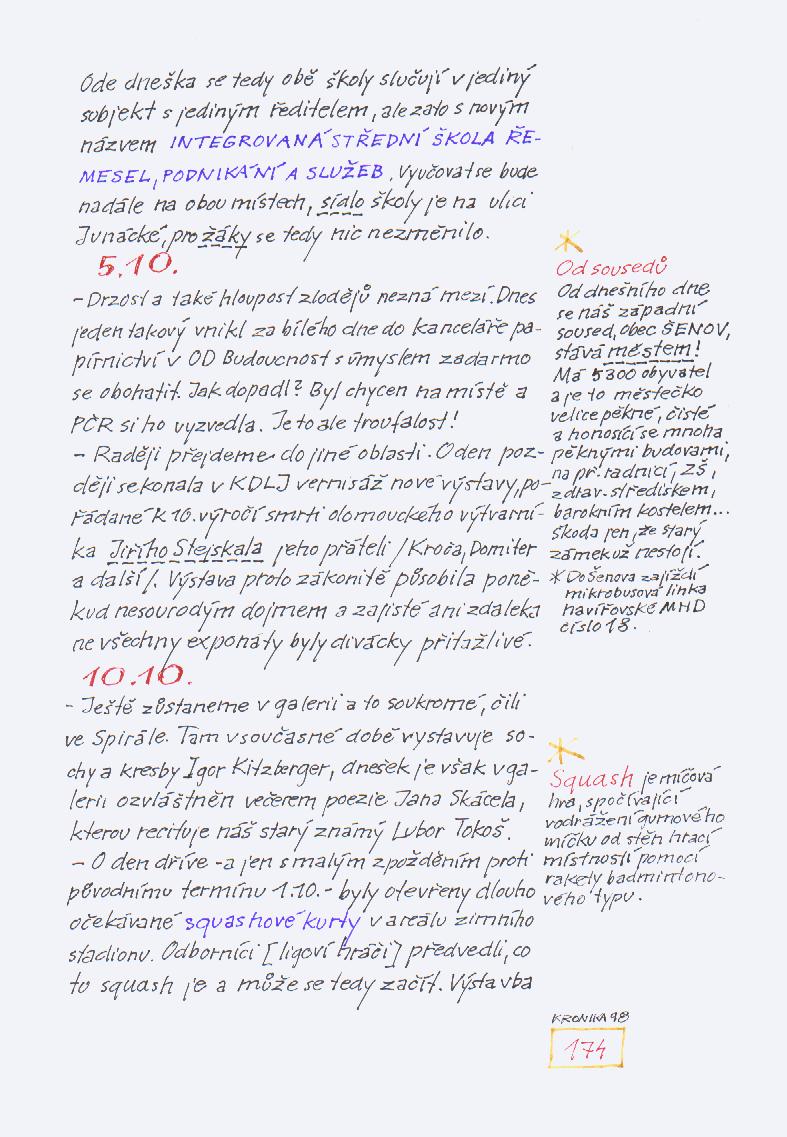 Ode dneška se tedy obě školy slučují v jediný
subjekt s jediným ředitelem, ale zato s novým
názvem INTEGROVANÁ STŘEDNÍ ŠKOLA ŘE-
MESEL, PODNIKÁNÍ A SLUŽEB. Vyučovat se bude
nadále na obou místech, sídlo školy je na ulici
Junácké, pro žáky se tedy nic nezměnilo.
5.10.
- Drzost a také hloupost zlodějů nezná mezí. Dnes
jeden takový vnikl za bílého dne do kanceláře pa-
pírnictví v OD Budoucnost s úmyslem zadarmo
se obohatit. Jak dopadl? Byl chycen na místě a
PČR si ho vyzvedla. Je to ale troufalost!
- Raději přejdeme do jiné oblasti. O den poz-
ději se konala v KDLJ vernisáž nové výstavy, po-
řádané k 10. výročí smrti olomouckého výtvarní-
ka Jiřího Stejskala jeho přáteli /Kroča, Domiter
a další/. Výstava proto zákonitě působila poně-
kud nesourodým dojmem a zajisté ani zdaleka
ne všechny exponáty byly divácky přitažlivé.
10.10.
- Ještě zůstaneme v galerii a to soukromé, čili
ve Spirále. Tam v současné době vystavuje so-
chy a kresby Igor Kitzberger, dnešek je však v ga-
lerii ozvláštněn večerem poezie Jana Skácela,
kterou recituje náš starý známý Lubor Tokoš.
- O den dříve - a jen s malým zpožděním proti
původnímu termínu 1.10. - byly otevřeny dlouho
očekávané squashové kurty v areálu zimního
stadionu. Odborníci [ligoví hráči] předvedli, co
to squash je a může se tedy začít. Výstavba
*
Od sousedů
Od dnešního dne
se náš západní
soused, obec ŠENOV,
stává městem!
Má 5300 obyvatel
a je to městečko
velice pěkné, čisté
a honosící se mnoha
pěknými budovami,
na př. radnicí, ZŠ,
zdrav. střediskem,
barokním kostelem...
Škoda jen, že starý
zámek už nestojí.
* Do Šenova zajíždí
mikrobusová linka
havířovské MHD
číslo 18.
*
Squash je míčová
hra, spočívající
v odrážení gumového
míčku od stěn hrací
místnosti pomocí
rakety badmintono-
vého typu.
KRONIKA 98
174